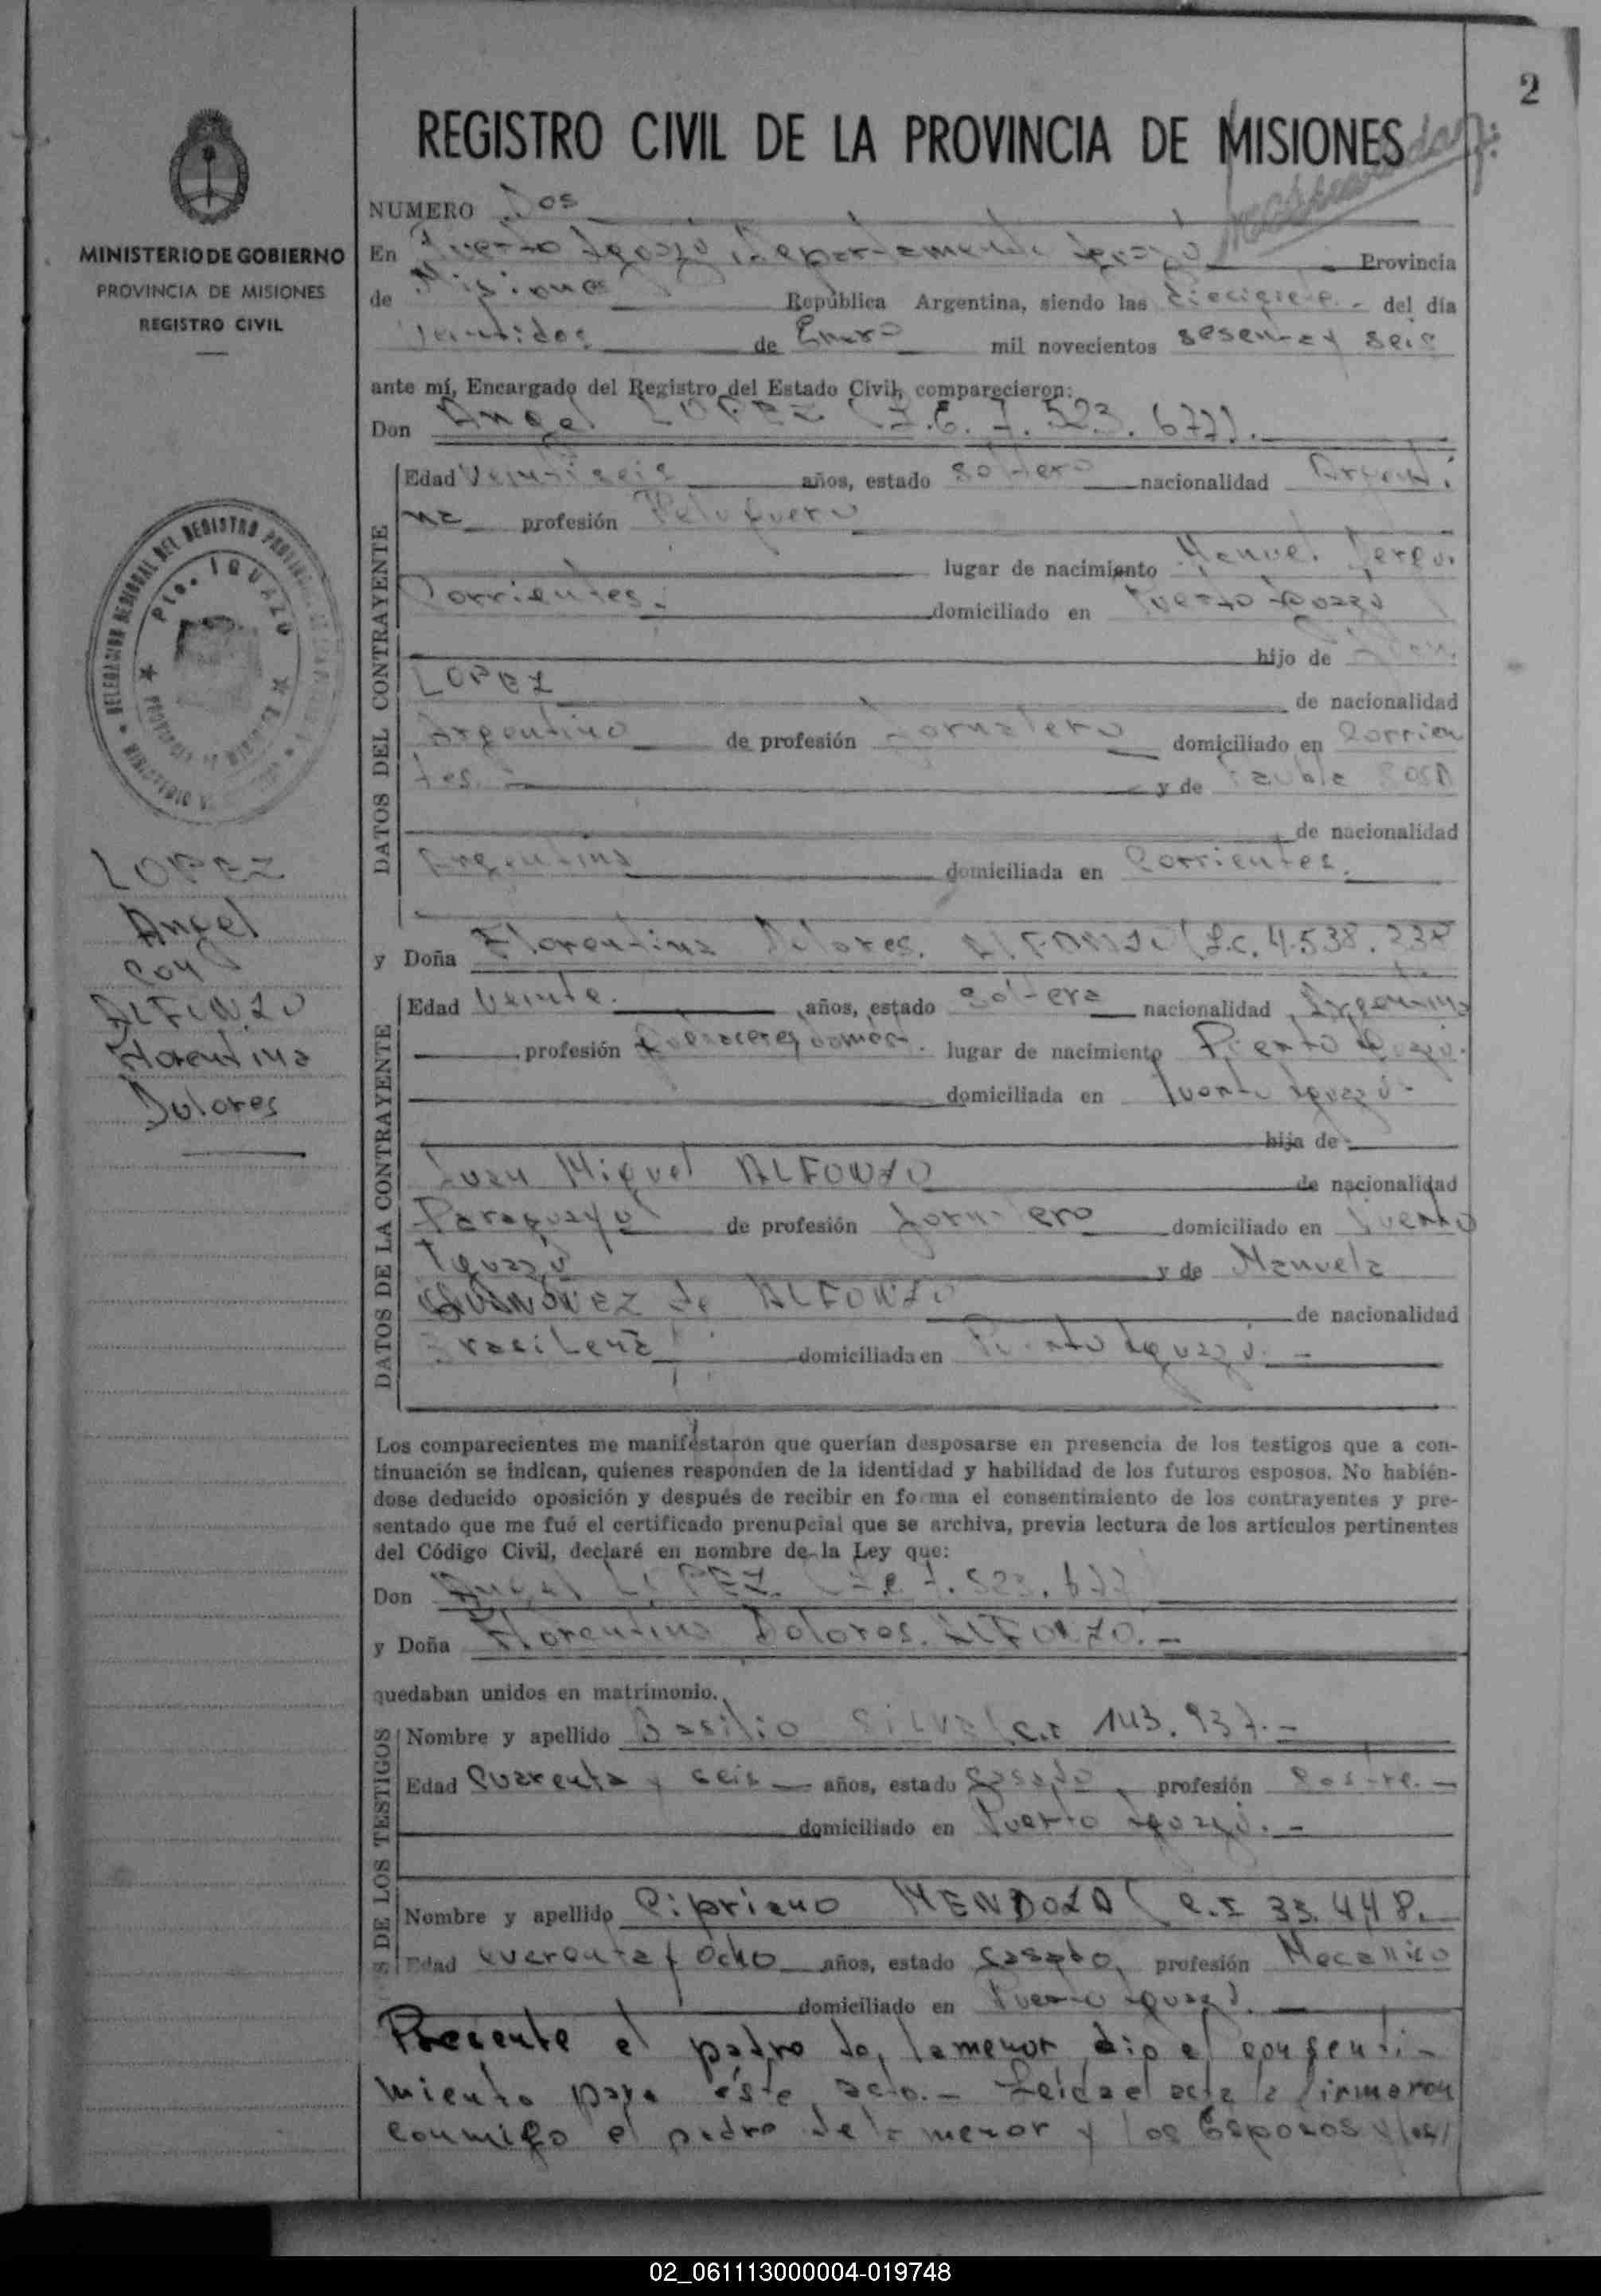 2
REGISTRO CIVIL DE LA PROVINCIA DE MISIONES
MINISTERIO DE GOBIERNO
PROVINCIA DE MISIONES
REGISTRO CIVIL
NUMERO Dos
En Puerto Iguazú, Departamento Iguazú Provincia
de Misiones República Argentina, siendo las diecisiete.- del día
Veintidos de Enero mil novecientos sesenta y seis
ante mí, Encargado del Registro del Estado Civil, comparecieron:
Don Angel LOPEZ 7.523.677).-
Edad Veintiseis años, estado soltero nacionalidad Argenti
na profesión Peluquero
lugar de nacimiento Manuel Derqui
Corrientes. domiciliado en Puerto Iguazú
hijo de
LOPEZ de nacionalidad
Argentino de profesión Jornalero domiciliado en Corrien
tes. y de
de nacionalidad
Argentina domiciliada en Corrientes.
y Doña Florentina Dolores. ALFONZO (L.C. 4.538.238
Edad Veinte. años, estado soltera nacionalidad Argentina
profesión Quehaceres domést. lugar de nacimiento Puerto Iguazú.
domiciliada en Puerto Iguazú.
hija de
Juan Miguel ALFONZO de nacionalidad
Paraguayo de profesión Jornalero domiciliado en Puerto
Iguazú y de Manuela
de ALFONZO de nacionalidad
Brasilera domiciliada en Puerto Iguazú. -
LOPEZ
Angel
con
ALFONZO
Florentina
Dolores
DATOS DEL CONTRAYENTE
DATOS DE LA CONTRAYENTE
Los comparecientes me manifestaron que querían desposarse en presencia de los testigos que a con-
tinuación se indican, quienes responden de la identidad y habilidad de los futuros esposos. No habién-
dose deducido oposición y después de recibir en forma el consentimiento de los contrayentes y pre-
sentado que me fué el certificado prenupcial que se archiva, previa lectura de los artículos pertinentes
del Código Civil, declaré en nombre de la Ley que:
Don Angel LOPEZ 7.523.677
y Doña Florentina Dolores. ALFONZO. -
quedaban unidos en matrimonio.
Nombre y apellido Basilio SILVA (C.I 143.937.-
Edad Cuarenta y seis años, estado casado, profesión Sastre. -
domiciliado en Puerto Iguazú. -
Nombre y apellido Cipriano MENDOZA (C.I 33.448.
Edad cuarenta y Ocho años, estado casado, profesión Mecanico
domiciliado en Puerto Iguazú.
S DE LOS TESTIGOS
Presente el padro de la menor dio el consenti-
miento para éste acto. - Leída el acta la firmaron
conmigo el padro de la menor y los Esposos y los/
02_061113000004-019748